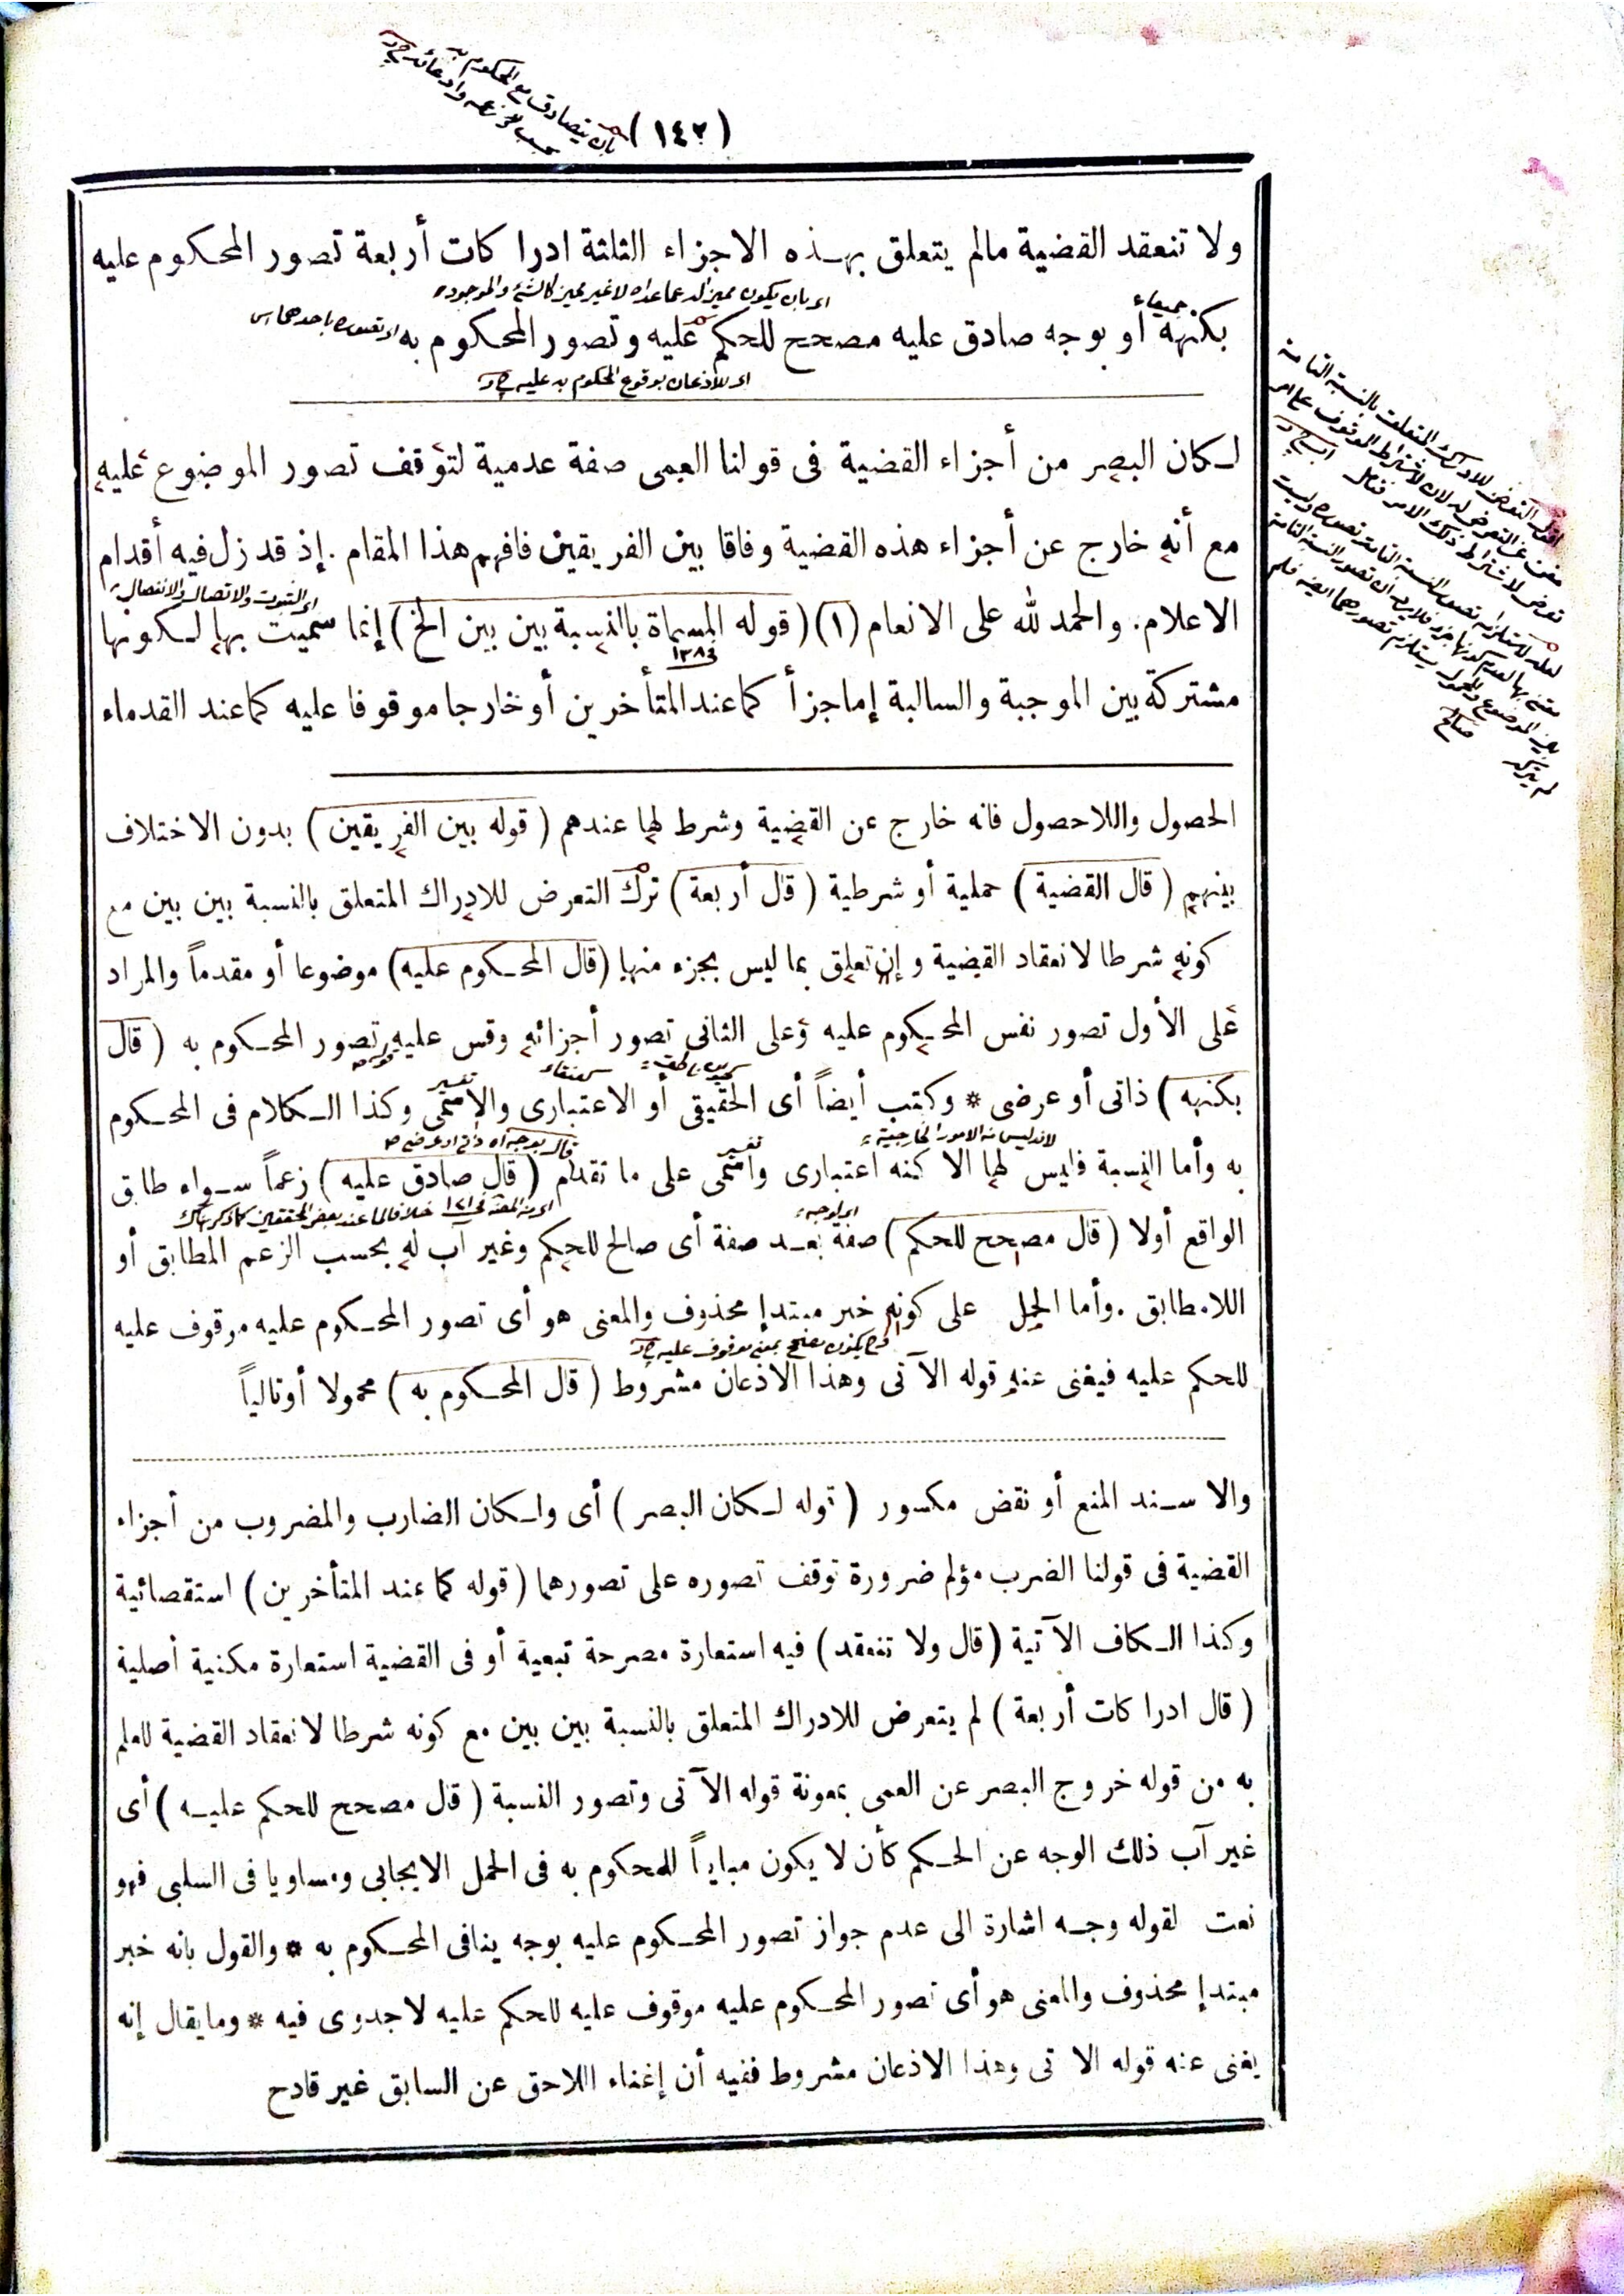 (١٤٢)
ولا تنعقد القضية مالم يتعلق بهذه الاجزاء الثلثة ادراكات أربعة تصور المحكوم عليه
بكنهه أو بوجه صادق عليه مصحح للحكم عليه وتصور المحكوم به
اى للاذعان بوقوع المحكوم به عليه
لكان البصر من أجزاء القضية فى قولنا العمى صفة عدمية لتوقف تصور الموضوع عليه
مع أنه خارج عن أجزاء هذه القضية وفاقا بين الفريقين فافهم هذا المقام . إذ قد زل فيه أقدام
اى الثبوت والاتصال والانفصال
الاعلام . والحمد لله على الانعام (١) (قوله المسماة بالنسبة بين بين الخ) إنما سميت بها لكونها
مشتركة بين الموجبة والسالبة إما جزأ كما عند المتأخرين أو خارجا موقوفا عليه كما عند القدماء
الحصول واللاحصول فانه خارج عن القضية وشرط لها عندهم (قوله بين الفريقين) بدون الاختلاف
بينهم (قال القضية) حملية أو شرطية (قال أربعة) ترك التعرض للادراك المتعلق بالنسبة بين بين مع
كونه شرطا لانعقاد القضية وإن تعلق بما ليس بجزء منها (قال المحكوم عليه) موضوعا أو مقدماً والمراد
على الأول تصور نفس المحكوم عليه وعلى الثانى تصور أجزائه وقس عليه تصور المحكوم به (قال
بكنهه) ذاتى أو عرضى * وكتب أيضاً أى الحقيقى أو الاعتبارى والاسمى وكذا الكلام فى المحكوم
لانه ليس من الامور الخارجية
به وأما النسبة فليس لها الا كنه اعتبارى واسمى على ما تقدم (قال صادق عليه) زعماً سواء طابق
الواقع أولا (قال مصحح للحكم) صفة بعد صفة أى صالح للحكم وغير آب له بحسب الزعم المطابق أو
اللامطابق . وأما الحمل على كونه خبر مبتدإ محذوف والمعنى هو أى تصور المحكوم عليه موقوف عليه
للحكم عليه فيغنى عنه قوله الآتى وهذا الاذعان مشروط (قال المحكوم به) محمولا أو تالياً
والا سند المنع أو نقض مكسور (قوله لكان البصر) أى ولكان الضارب والمضروب من أجزاء
القضية فى قولنا الضرب مؤلم ضرورة توقف تصوره على تصورهما (قوله كما عند المتأخرين) استقصائية
وكذا الكاف الآتية (قال ولا تنعقد) فيه استعارة مصرحة تبعية أو فى القضية استعارة مكنية أصلية
(قال ادراكات أربعة) لم يتعرض للادراك المتعلق بالنسبة بين بين مع كونه شرطا لانعقاد القضية للعلم
به من قوله خروج البصر عن العمى بمعونة قوله الآتى وتصور النسبة (قال مصحح للحكم عليه) أى
غير آب ذلك الوجه عن الحكم كأن لا يكون مبايناً للمحكوم به فى الحمل الايجابى ومساويا فى السلبى فهو
نعت لقوله وجه اشارة الى عدم جواز تصور المحكوم عليه بوجه ينافى المحكوم به * والقول بانه خبر
مبتدإ محذوف والمعنى هو أى تصور المحكوم عليه موقوف عليه للحكم عليه لا جدوى فيه * وما يقال إنه
يغنى عنه قوله الاتى وهذا الاذعان مشروط ففيه أن إغناء اللاحق عن السابق غير قادح